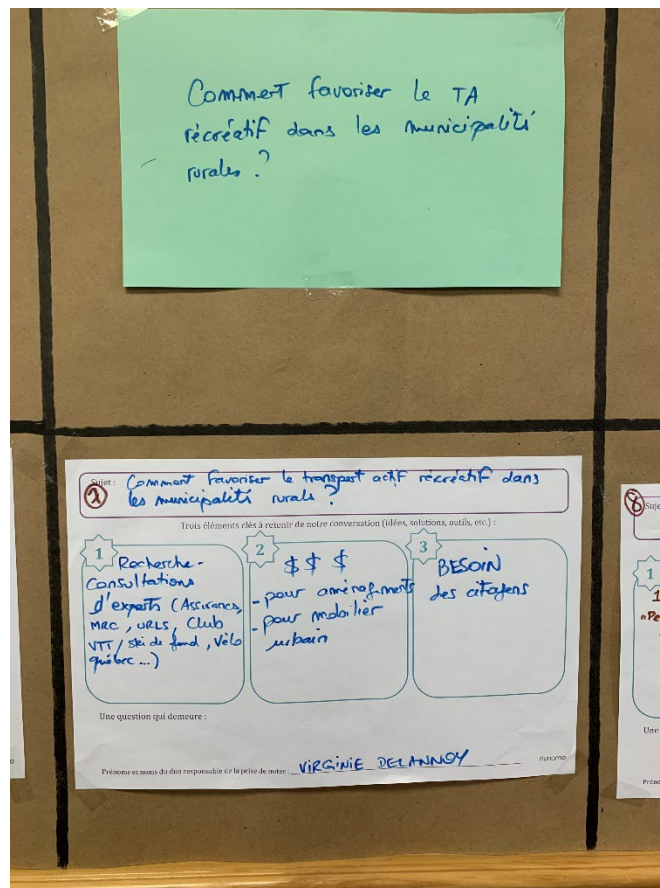 Comment favoriser le TA
récréatif dans les municipalités
rurales ?
Sujet : Comment favoriser le transport actif récréatif dans
2
les municipalités rurals ?
Trois éléments clés à retenir de notre conversation (idées, solutions, outils, etc.) :
1
Recherche -
Consultations
d'experts (Assurances,
MRC, URLS, Club
VTT / ski de fond, Vélo
québec ...)
2
$ $ $
- pour aménagements
- pour mobilier
urbain
3
BESOIN
des citoyens
Une question qui demeure :
Prénoms et noms du duo responsable de la prise de notes : VIRGINIE DELANNOY
dunamo
8
Suje
1
1
«Pe
Une
Préno